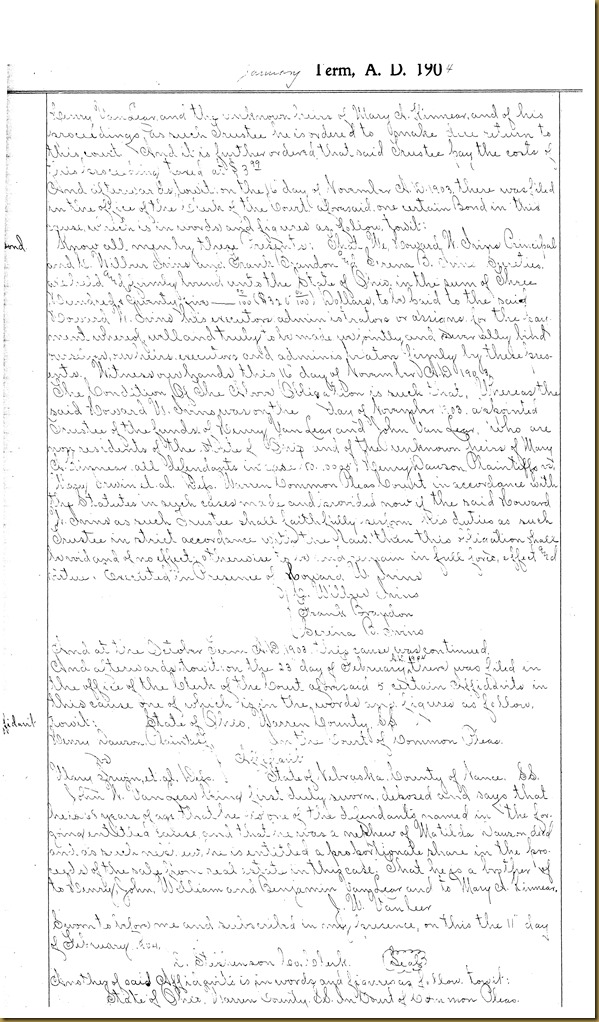 January Term, A. D. 1904
Henry VanLear, and the unknown heirs of Mary A. Kinnear, and of his
proceedings, as such Trustee he is ordered to make due return to
this court. And it is further ordered that said Trustee pay the costs of
this proceeding taxed at $3.99
And afterwards, towit: on the 16 day of November A.D. 1903, there was filed
in the office of the Clerk of the Court aforesaid one certain Bond in this
cause, which is in words and figures as follow, towit:
Bond
Know all men by these Presents: That We Howard W. Ivins Principal
and C. Wilber Ivins and Frank Brandon Serena B. Ivins Sureties,
are held and firmly bound unto the State of Ohio, in the sum of Three
Hundred Dollars, to be paid to the said
Howard W. Ivins his executors administrators or assigns, for the pay-
ment whereof, well and truly to be made, we jointly and severally bind
ourselves, our heirs, executors and administrators firmly by these pres-
ents. Witness our hands this 16 day of November A.D. 1903.
The Condition Of The Above Obligation is such that, Whereas the
said Howard W. Ivins was on the day of November 1903, appointed
Trustee of the funds of Henry VanLear and John VanLear, who are
non residents of the State of Ohio and of the unknown heirs of Mary
A. Kinnear all defendants in case No. Henry Dawson Plaintiff vs.
Mary Irwin et. al. Defs. Warren Common Pleas Court in accordance with
the Statutes in such cases made and provided now if the said Howard
W. Ivins as such Trustee shall faithfully perform his duties as such
Trustee in strict accordance with the Law. then this obligation shall
be void and of no effect, otherwise to be and remain in full force, effect and
virtue. Executed in Presence of Howard W. Ivins
C. Wilber Ivins
Frank Brandon
Serena B. Ivins
And at the October Term A.D. 1903. this cause was continued.
And afterwards towit: on the 23 day of February A.D. 1904 there was filed in
the office of the Clerk of the Court aforesaid 5 certain Affidavits in
this cause one of which is in the words and figures as follow,
ffidavit
Towit: State of Ohio, Warren County, SS
Henry Dawson, Plaintiff, In the Court of Common Pleas.
vs Affidavit
Mary Irwin, et. al. Defs. State of Nebraska, County of Nance. SS.
John W. VanLear being first duly sworn, deposes and says that
he is years of age that he is one of the defendants named in the for-
going entitled cause, and that he was a nephew of Matilda Dawson, decd
and as such nephew he is entitled a proportionate share in the pro-
ceeds of the sale from real estate in this case, That he is a brother of
to Henry, John, William and Benjamin VanLear and to Mary A. Kinnear.
J. W. VanLeer
Sworn to before me and subscribed in my presence, on this the 11 day
of February 1904.
Stephenson Co. Clerk. Seal
Another of said Affidavits is in words and figures as follow towit:
State of Ohio, Warren County, SS. In Court of Common Pleas.